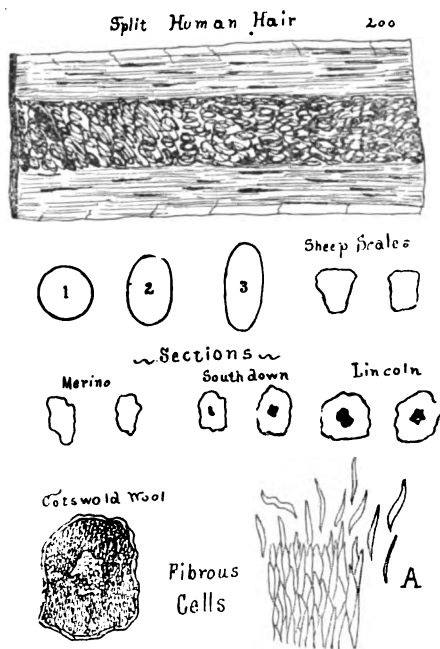 Split Human Hair 200
Sheep Scales
1 2 3
~ Sections ~
Merino Southdown Lincoln
Cotswold Wool
Fibrous
Cells
A